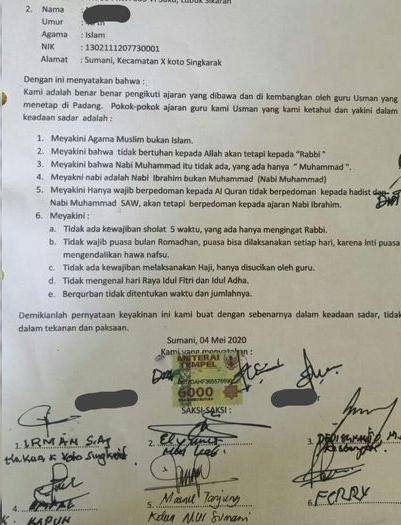 2. Nama :
Umur :
Agama : Islam
NIK : 1302111207730001
Alamat : Sumani, Kecamatan X koto Singkarak
Dengan ini menyatakan bahwa :
Kami adalah benar benar pengikuti ajaran yang dibawa dan di kembangkan oleh guru Usman yang
menetap di Padang. Pokok-pokok ajaran guru kami Usman yang kami ketahui dan yakini dalam
keadaan sadar adalah :
1. Meyakini Agama Muslim bukan Islam.
2. Meyakini bahwa tidak bertuhan kepada Allah akan tetapi kepada "Rabbi "
3. Meyakini bahwa Nabi Muhammad itu tidak ada, yang ada hanya " Muhammad ".
4. Meyakni nabi adalah Nabi Ibrahim bukan Muhammad (Nabi Muhammad)
5. Meyakini Hanya wajib berpedoman kepada Al Quran tidak berpedoman kepada hadist dan
Nabi Muhammad SAW, akan tetapi berpedoman kepada ajaran Nabi Ibrahim.
6. Meyakini :
a. Tidak ada kewajiban sholat 5 waktu, yang ada hanya mengingat Rabbi.
b. Tidak wajib puasa bulan Romadhan, puasa bisa dilaksanakan setiap hari, karena inti puasa
mengendalikan hawa nafsu.
c. Tidak ada kewajiban melaksanakan Haji, hanya disucikan oleh guru.
d. Tidak mengenal hari Raya Idul Fitri dan Idul Adha.
e. Berqurban tidak ditentukan waktu dan jumlahnya.
Demikianlah pernyataan keyakinan ini kami buat dengan sebenarnya dalam keadaan sadar, tidak
dalam tekanan dan paksaan.
Sumani, 04 Mei 2020
Kami yang menyatakan :
METERAI
TEMPEL
6000
SAKSI-SAKSI :
1. IRMAN S.Ag
2.
3.
4.
5. Manul Tanjung
Ketua MUI Sumani
6. FERRY